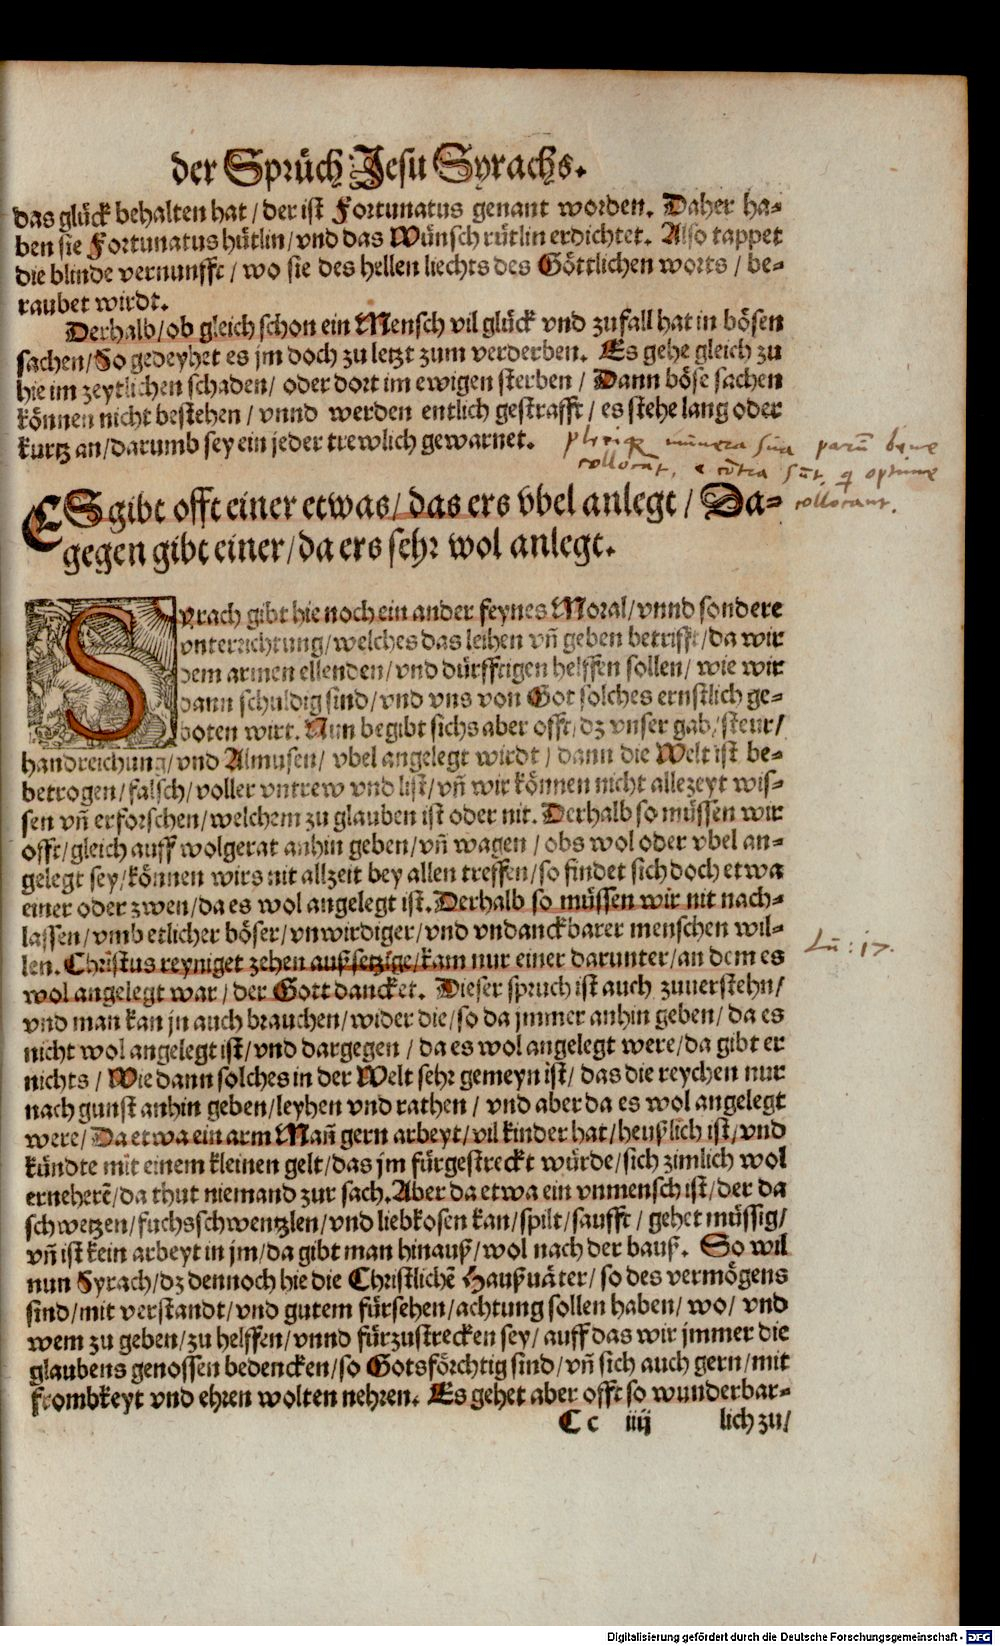 der Sprüch Jesu Syrachs.
das glück behalten hat / der ist Fortunatus genant worden. Daher ha-
ben sie Fortunatus hütlin / vnd das Wünsch rütlin erdichtet. Also tappet
die blinde vernunfft / wo sie des hellen liechts des Göttlichen worts / be-
raubet wirdt.
Derhalb / ob gleich schon ein Mensch vil glück vnd zufall hat in bösen
sachen / So gedeyhet es jm doch zu letzt zum verderben. Es gehe gleich zu
hie im zeytlichen schaden / oder dort im ewigen sterben / Dann böse sachen
können nicht bestehen / vnnd werden entlich gestrafft / es stehe lang oder
kurtz an / darumb sey ein jeder trewlich gewarnet.
pleriq; munera sua parū bene
collocāt, e cōtra sūt, q optime
collocant.
ES gibt offt einer etwas / das ers vbel anlegt / Da-
gegen gibt einer / da ers sehr wol anlegt.
Syrach gibt hie noch ein ander feynes Moral / vnnd sondere
vnterrichtung / welches das leihen vñ geben betrifft / da wir
dem armen ellenden / vnd dürfftigen helffen sollen / wie wir
dann schuldig sind / vnd vns von Got solches ernstlich ge-
boten wirt. Nun begibt sichs aber offt / dz vnser gab / steur /
handreichung / vnd Almusen / vbel angelegt wirdt / dann die Welt ist be-
betrogen / falsch / voller vntrew vnd list / vñ wir können nicht allezeyt wis-
sen vñ erforschen / welchem zu glauben ist oder nit. Derhalb so müssen wir
offt / gleich auff wolgerat anhin geben / vñ wagen / obs wol oder vbel an-
gelegt sey / können wirs nit allzeit bey allen treffen / so findet sich doch etwa
einer oder zwen / da es wol angelegt ist. Derhalb so müssen wir nit nach-
lassen / vmb etlicher böser / vnwirdiger / vnd vndanckbarer menschen wil-
len. Christus reyniget zehen außsetzige / kam nur einer darunter / an dem es
Lu: 17.
wol angelegt war / der Gott dancket. Dieser spruch ist auch zuuerstehn /
vnd man kan jn auch brauchen / wider die / so da jmmer anhin geben / da es
nicht wol angelegt ist / vnd dargegen / da es wol angelegt were / da gibt er
nichts / Wie dann solches in der Welt sehr gemeyn ist / das die reychen nur
nach gunst anhin geben / leyhen vnd rathen / vnd aber da es wol angelegt
were / Da etwa ein arm Mañ gern arbeyt / vil kinder hat / heußlich ist / vnd
kündte mit einem kleinen gelt / das jm fürgestreckt würde / sich zimlich wol
ernehērē / da thut niemand zur sach. Aber da etwa ein vnmensch ist / der da
schwetzen / fuchsschwentzlen / vnd liebkosen kan / spilt / saufft / gehet müssig /
vñ ist kein arbeyt in jm / da gibt man hinauß / wol nach der bauß. So wil
nun Syrach / dz dennoch hie die Christlichē Haußuäter / so des vermögens
sind / mit verstandt / vnd gutem fürsehen / achtung sollen haben / wo / vnd
wem zu geben / zu helffen / vnnd fürzustrecken sey / auff das wir jmmer die
glaubens genossen bedencken / so Gotsförchtig sind / vñ sich auch gern / mit
frombkeyt vnd ehren wolten nehren. Es gehet aber offt so wunderbar-
C c iiij lich zu /
Digitalisierung gefördert durch die Deutsche Forschungsgemeinschaft - DFG